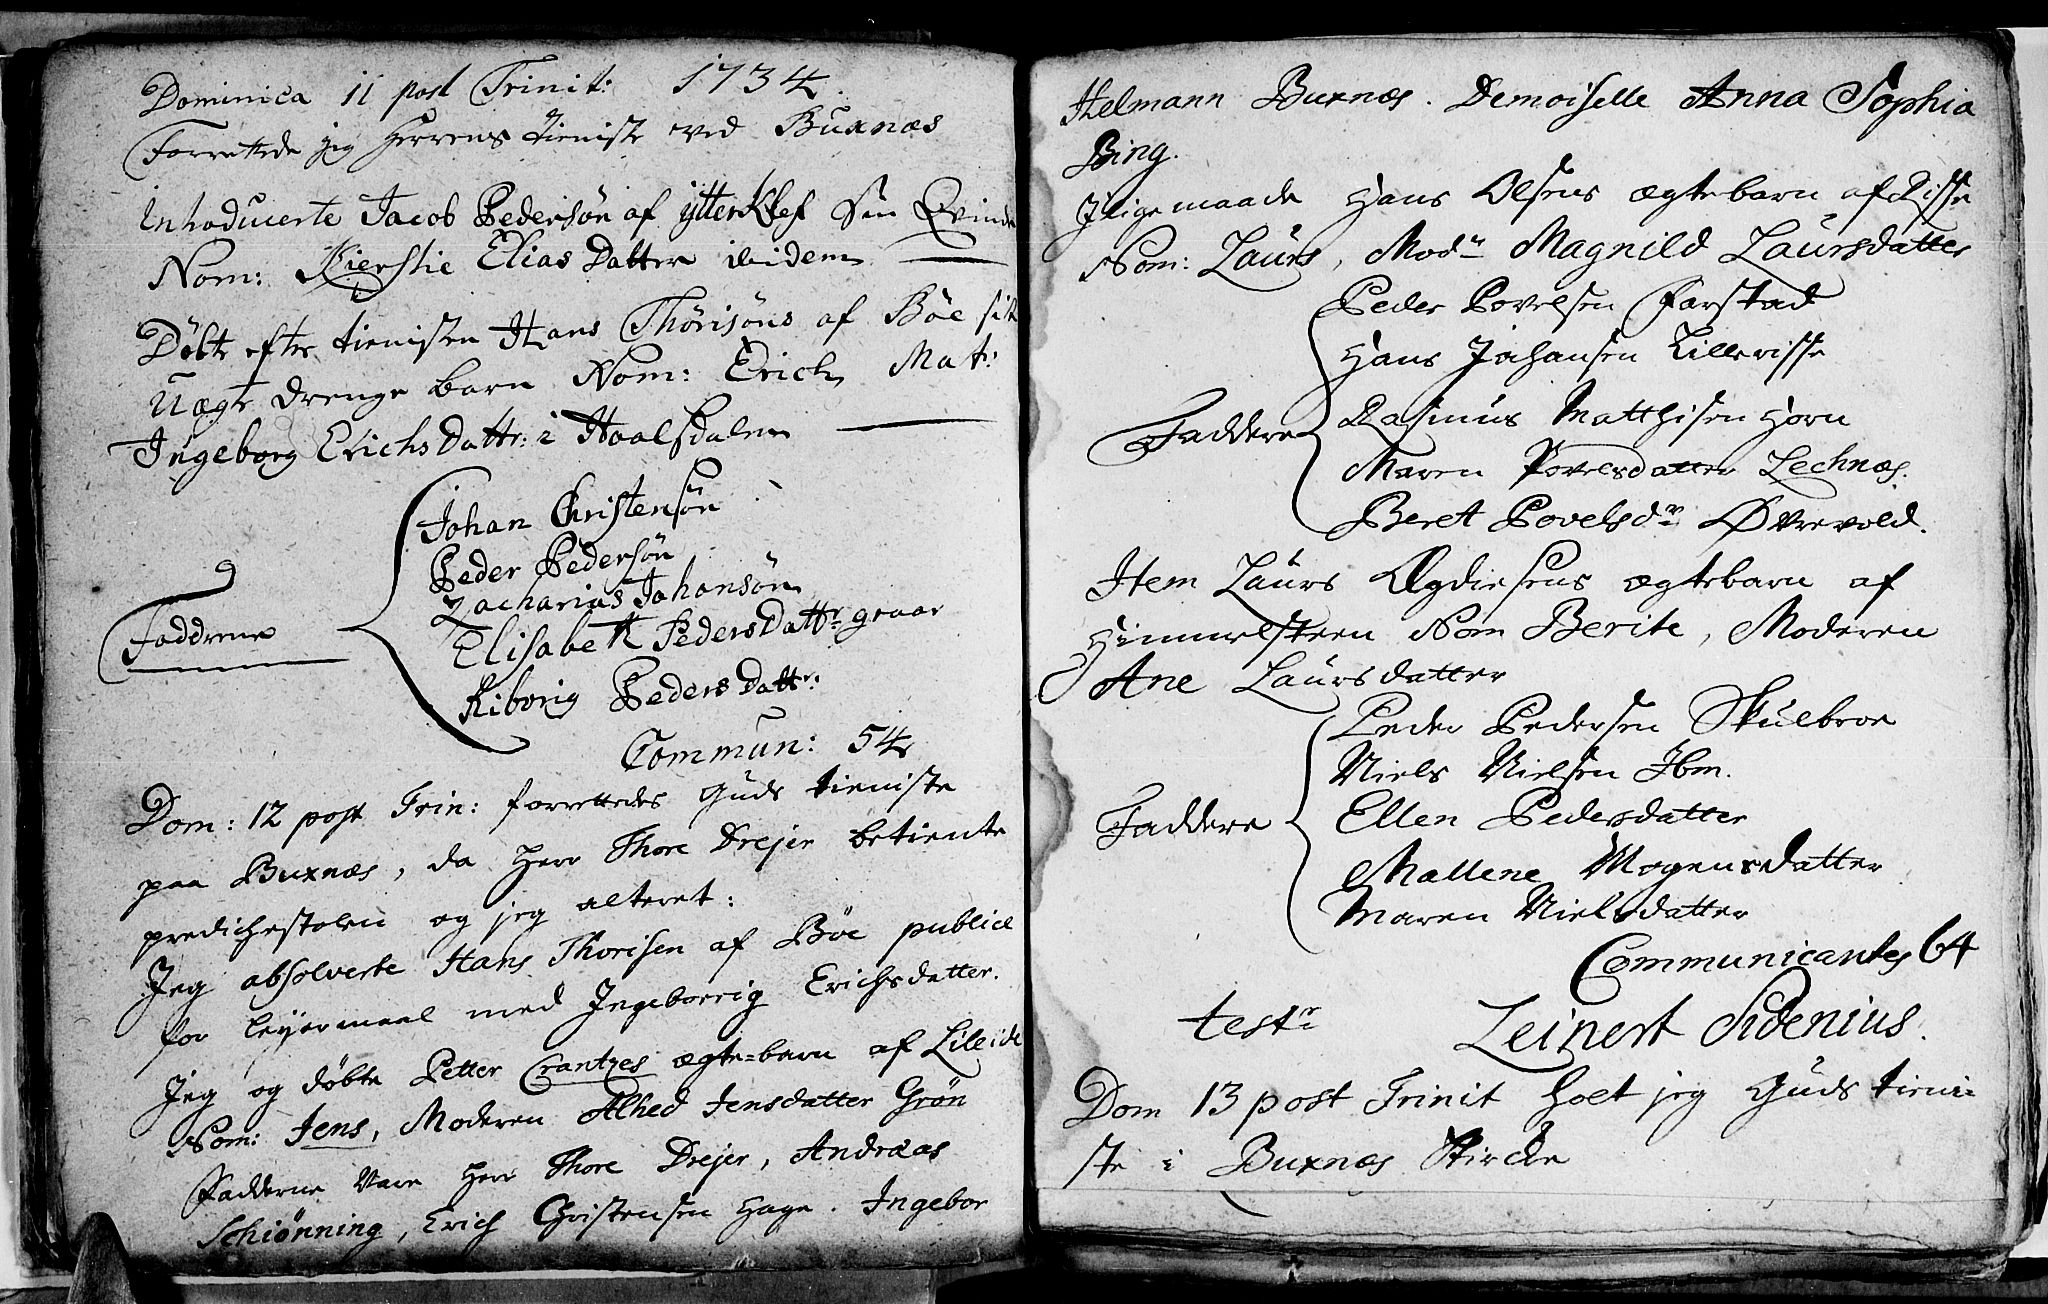 Dominica 11 post Trinit: 1734.
Forrettede jeg Herrens tieniste ved Buxnæs
Introducerte Jacob Pedersøn af ytterKlef Sin Qvinde
Nom: Kierstie Elias Datter ibidem
Døbt efter tienisten Hans Thørisøns af Bøe sit
Uægte drenge barn Nom: Erich Mat:
Ingeborg Erichs Dattr: i Haalsdalen
Johan Christensøn
Peder Pedersøn
Zacharias Johansøn
Faddrene
Elisabeth Peders Dattr: graar
Kiborig Peders Dattr:
Commun: 54
Dom: 12 post Trin: forrettedes Guds tieniste
paa Buxnæs, da Herr Thore Drejer betiente
predichestolen og jeg alteret:
Jeg absolverte Hans Thorisen af Bøe publice
for leyermaal med Ingeborrig Erichsdatter.
Jeg og døbte Petter Crantzes ægte=barn af Lileide
Nom: Jens, Moderen Alhed Jensdatter Grön
Fadderne Vare Herr Thore Drejer, Andreas
Schiønning, Erich Christensen Hage. Ingebor
Helmann Buxnæs. Demoiselle Anna Sophia
Bing.
Jligemaade Hans Olsens ægtebarn af Risse
Nom: Laurs, Modn Magnild Laursdatter
Peder Povelsen Farstad
Hans Johansen Lillerisse
Faddere
Rasmus Matthisen Horn
Maren Povelsdatter Lechnæs.
Beret Povelsdr Øvrevold.
Item Laurs Ogdiesens ægtebarn af
Himmelsteen Nom Berite, Moderen
Ane Laursdatter
Peder Pedersen Skulbroe
Niels Nielsen Ibm.
Faddere
Ellen Pedersdatter
Mallene Mogensdatter
Maren Nielsdatter
Communicantes 64
testr
Leinert Sidenius.
Dom 13 post Trinit holt jeg Guds tieni=
ste i Buxnæs Kircke